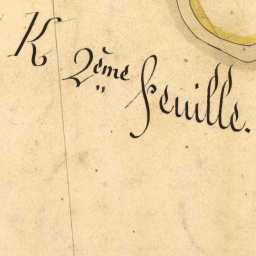 K 2ème feuille.